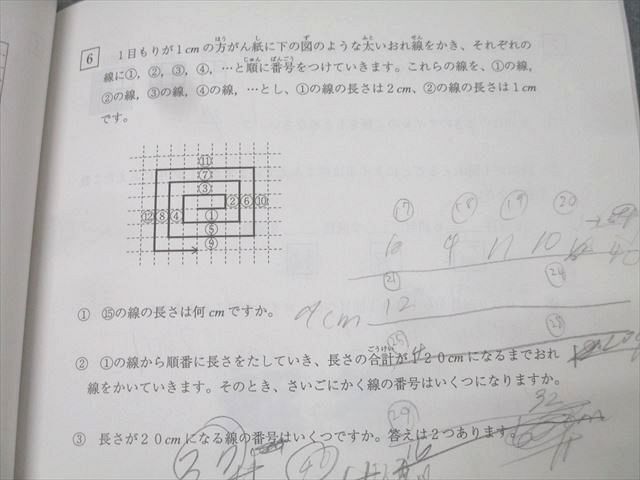 6 １目もりが１cmの方がん紙に下の図のような太いおれ線をかき、それぞれの
線に①，②，③，④，…と順に番号をつけていきます。これらの線を、①の線，
②の線，③の線，④の線，…とし、①の線の長さは２cm、②の線の長さは１cm
です。
⑪
⑦
③
②⑥⑩
⑫⑧④ ①
⑤
⑨
⑰ ⑱ ⑲ ⑳
9 11 10
㉑ ㉔
12
① ⑮の線の長さは何cmですか。
cm
② ①の線から順番に長さをたしていき、長さの合計が１２０cmになるまでおれ
線をかいていきます。そのとき、さいごにかく線の番号はいくつになりますか。
㉙
32
③ 長さが２０cmになる線の番号はいくつですか。答えは２つあります。
16
37 40